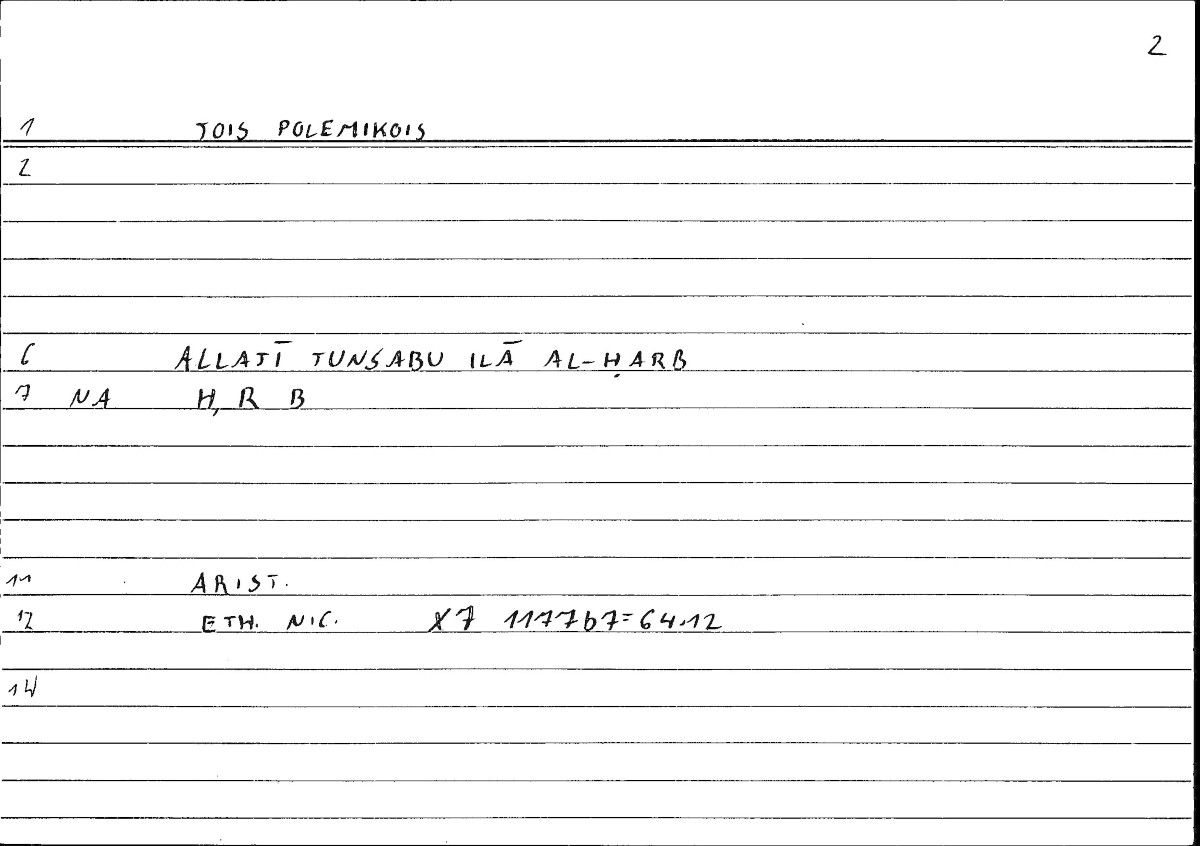 2
1 TOIS POLEMIKOIS
2
6 ALLATĪ TUNSABU ILĀ AL-ḤARB
7 NA H, R B
11 ARIST.
12 ETH. NIC. X7 1177b7=64.12
14